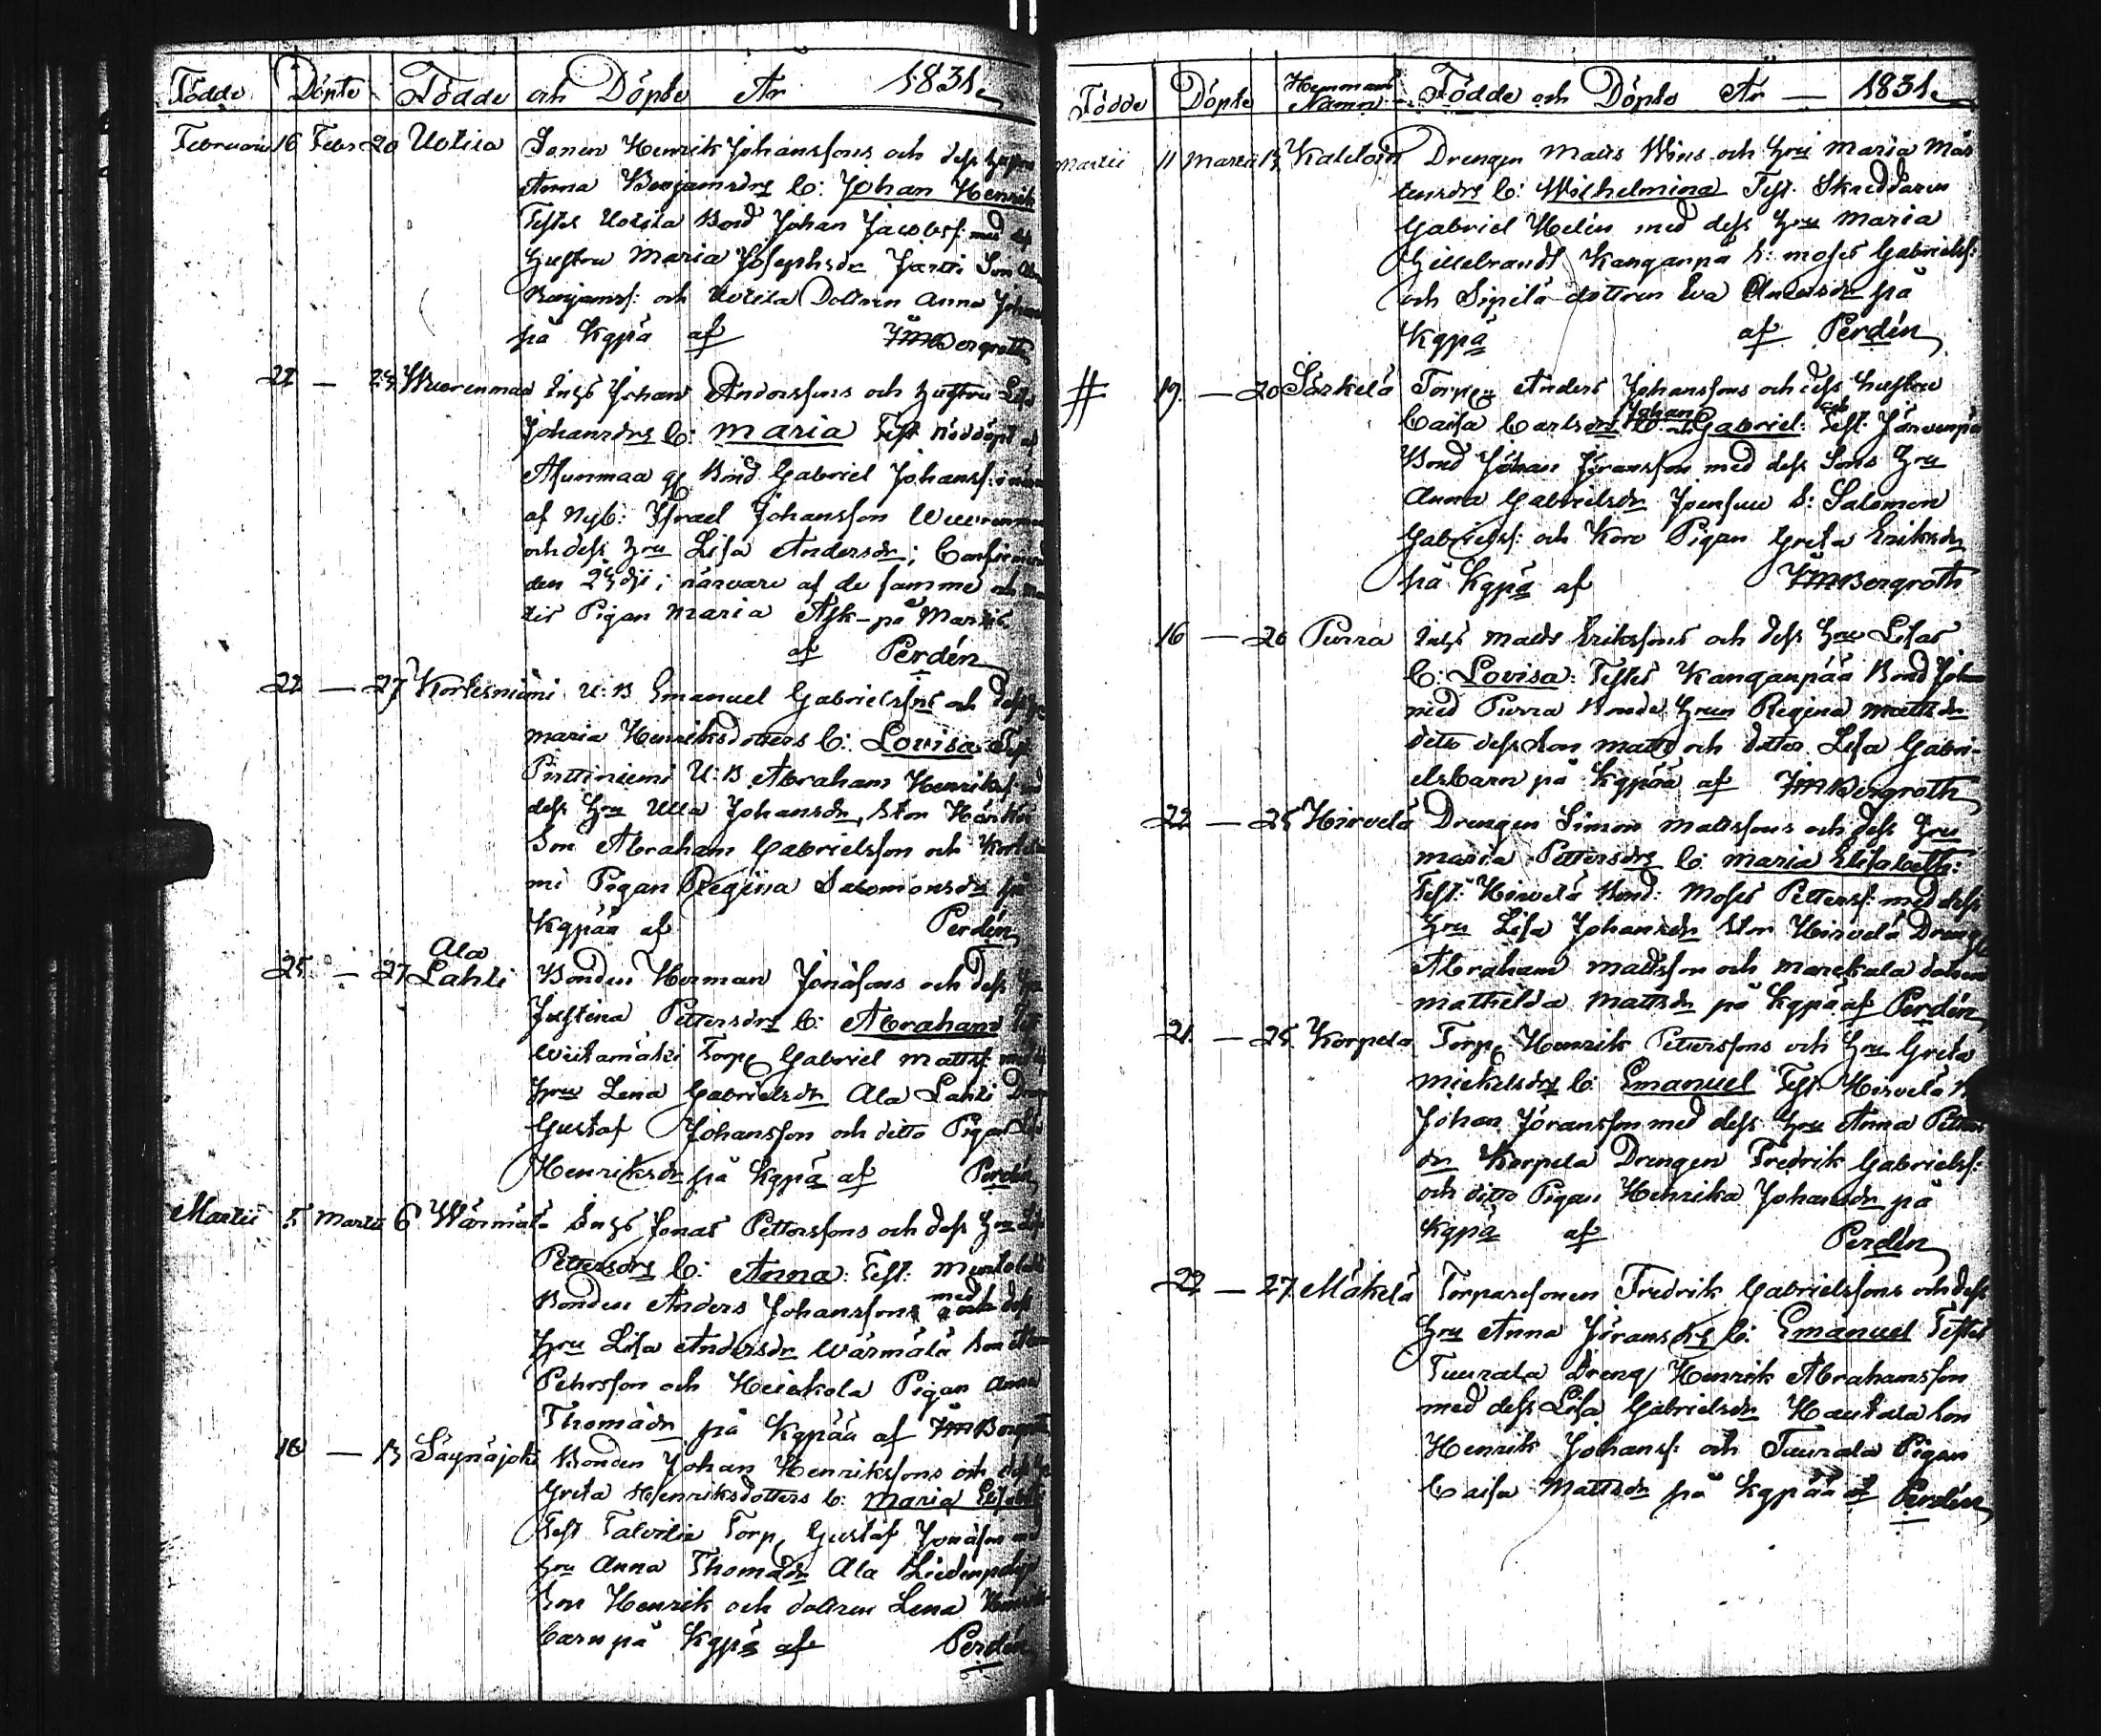 Födde Döpte Födde och Döpte År 1831
Februarii 16 Febr 20 Uotila Sonen Henrik Johanssons och dess hustru
Anna Benjamsdrs b: Johan Henrik
Testes Uotila Bond Johan Jacobss: med dess
hustru Maria Josephsdr Son
Benjamss: och Uotila Dottren Anna
på Kgpä af JMBergroth
22 — Wuorenmaa Inhs Johan Anderssons och hustru Lisa
Johansdrs b: Maria Test nöddöpt af
Asunmaa Bond Gabriel Johanss:
af Nyb: Israel Johansson Wuorenmaa
och dess hru Lisa Andersdr; Confirmerad
den i närvaro af de samme och
Pigan Maria Ask på
af Perdén
22 — 27 Korkesniemi U:B Emanuel Gabrielssons och dess
Maria Henriksdotters b: Lovisa Test
Pinttiniemi U:B Abraham Henrikss: med
dess hru Ulla Johansdr, Stor
Son Abraham Gabrielsson och
mi Pigan Regina Salomonsdr på
Kgpää af Perdén
25 — 27 Ala Lahti Bonden Herman Jonassons och dess
Justina Pettersdrs b: Abraham
Wiitamäki Torp Gabriel Mattss:
hru Lena Gabrielsdr Ala Lahti
Gustaf Johansson och ditto Pigan
Henriksdr på Kgpä af Perdén
Martii 5 Martii 6 Wärmälä Inhs Jonas Petterssons och dess hru
Pettersdrs b: Anna: Test:
Bonden Anders Johanssons med dess
hru Lisa Andersdr Wärmälä Son
Pehrsson och Heickola Pigan Anna
Thomadr på Kgpää af JMBergroth
10 — 13 Säynäjoki Bonden Johan Henrikssons och dess
Greta Henriksdotters b: Maria Elisabeth
Test Talvitie Torp, Gustaf Jonasson med
hru Anna Thomadr Ala Liedenpohja
Son Henrik och dottren Lena
barn på Kgpä af Perdén
Födde Döpte Hemmans Namn Födde och Döpte År — 1831
Martii 11 Martii 13 Kaldoin Drengen Matts Wins och hru Maria Mår
tensdrs b: Wilhelmina Test. Skreddaren
Gabriel Helin med dess hru Maria
Hillebrandt Kanganpä S: Moses Gabrielss:
och Sipilä dottren Eva Andersdr på
Kgpä af Perdén
# 19 — 20 Särkelä Torp Anders Johanssons och dess hustru
Caisa Carlsdrs b: Johan och Gabriel: Test: Järvenpä
Bond Johan Jöransson med dess Sons hru
Anna Gabrielsdr Joensuu S: Salomon
Gabrielss: och Koro Pigan Greta Eriksdr
på Kgpä af JMBergroth
16 — 20 Purra Inhs Matts Erikssons och dess hru Lisas
b: Lovisa: Testes Kanganpää Bond Johan
med Purra Bonde hrun Regina Mattsdr
ditto dess Son Matts och dotter Lisa Gabri-
elsbarn på Kgpää af JMBergroth
22 — 25 Hirvelä Drengen Simon Mattssons och dess hru
Maria Pettersdrs b: Maria Elisabeth:
Test: Hirvelä Bond: Moses Petterss: med dess
hru Lisa Johansdr Stor Hirvelä Dreng
Abraham Mattsson och Marckala dottren
Mathilda Mattsdr på Kgpää af Perdén
21 — 25 Korpela Torp: Henrik Petterssons och hru Greta
Mickelsdrs b: Emanuel Test Hirvelä
Johan Jöransson med dess hru Anna Petters
dr Korpela Drengen Fredrik Gabrielss:
och ditto Pigan Henrika Johansdr på
Kgpä af Perdén
22 — 27 Mäkelä Torparesonen Fredrik Gabrielssons och dess
hru Anna Jöransdrs b: Emanuel Testes
Tuurala Dreng Henrik Abrahamsson
med dess Lisa Gabrielsdr Hautala Son
Henrik Johanss: och Tuurala Pigan
Caisa Mattsdr på Kgpää af Perdén